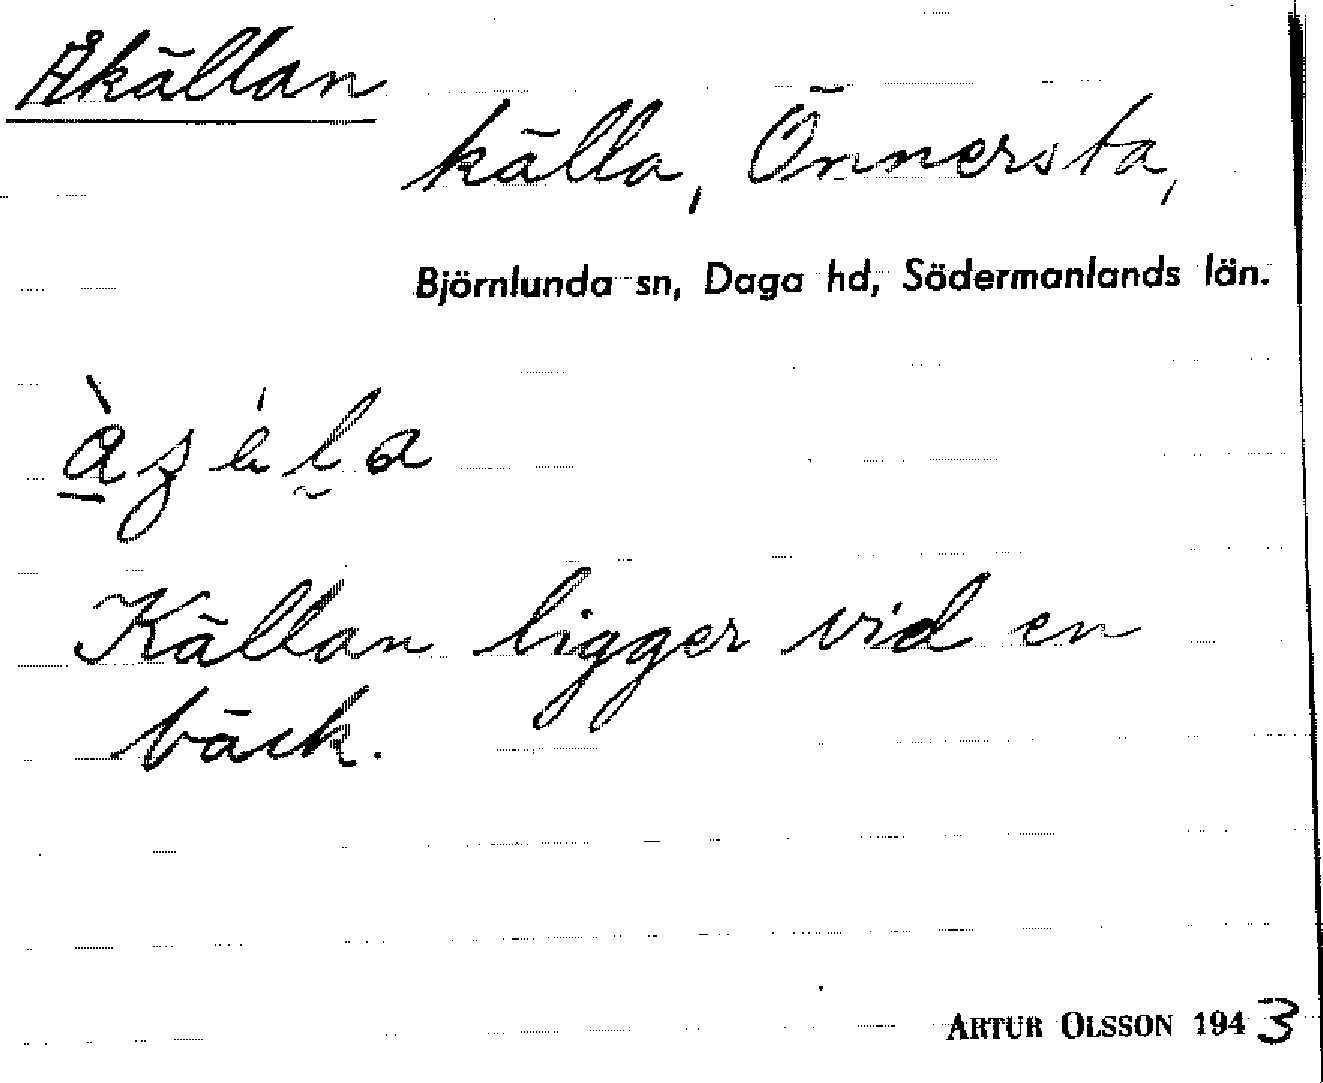 Åkällan
källa, Önnersta,
Björnlunda sn, Daga hd, Södermanlands län.
Källan ligger vid en
bäck.
ARTUR OLSSON 1943